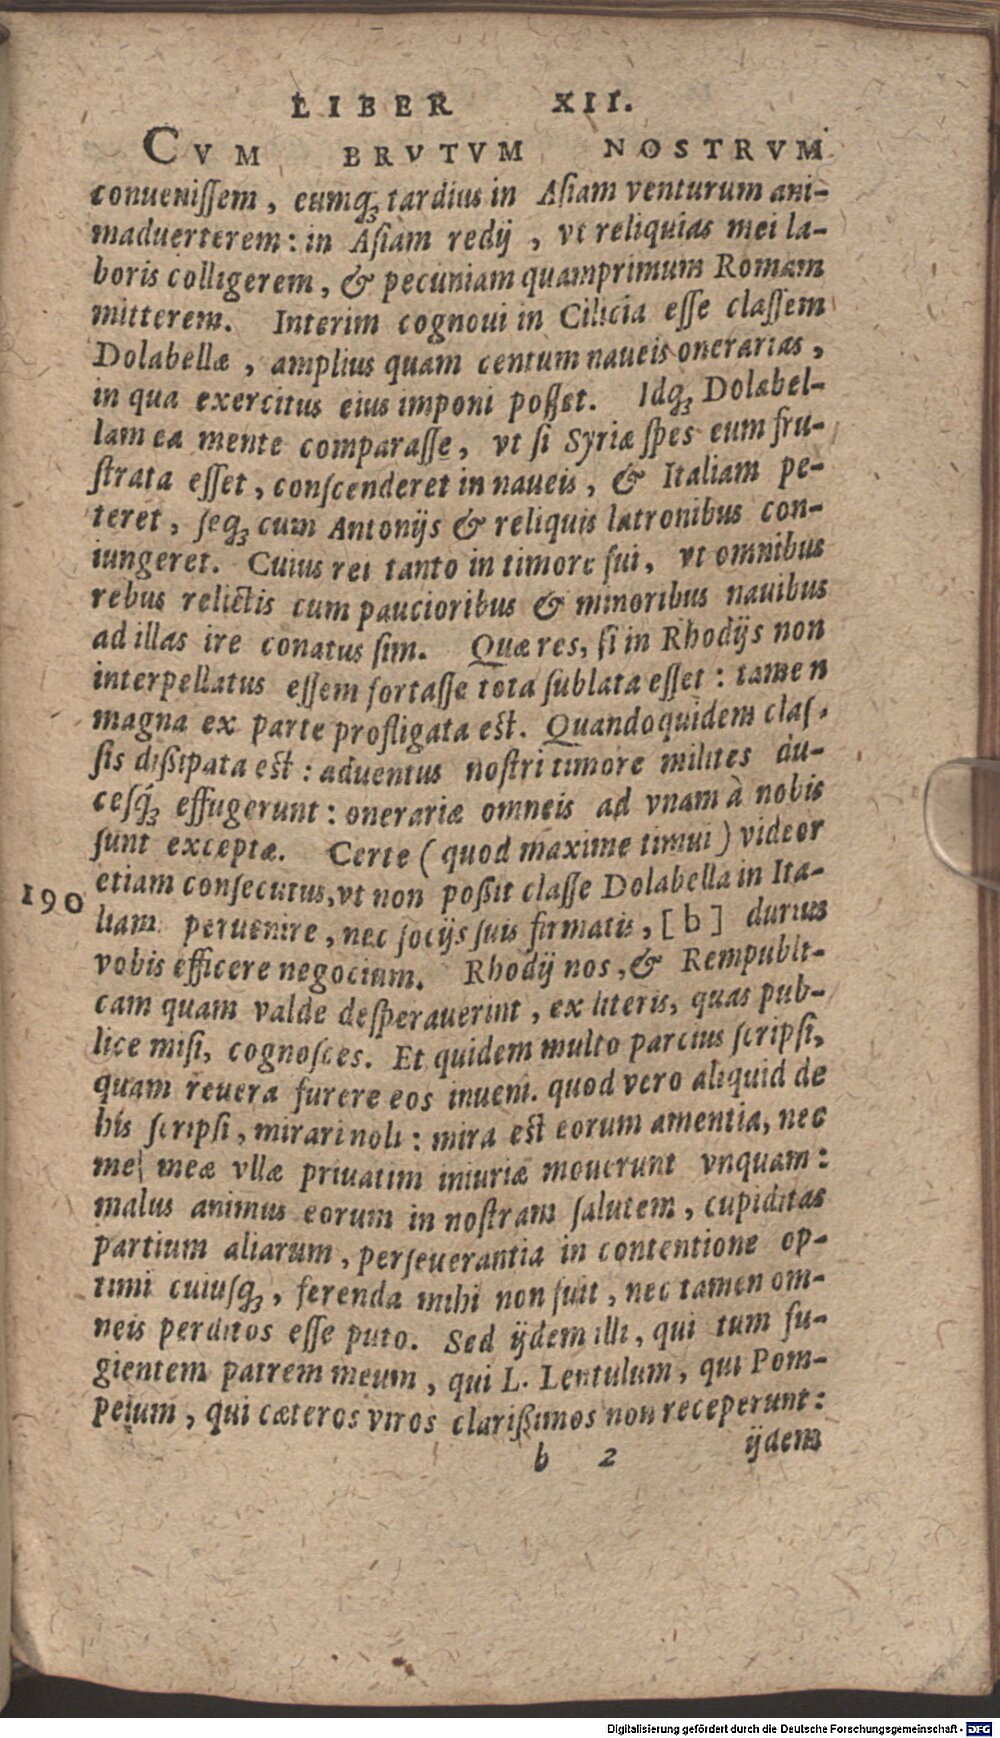 LIBER XII.
CVM BRVTVM NOSTRVM
conuenissem, eumqꝫ tardius in Asiam venturum ani-
maduerterem: in Asiam redij, vt reliquias mei la-
boris colligerem, & pecuniam quamprimum Romam
mitterem. Interim cognoui in Cilicia esse classem
Dolabellæ, amplius quam centum naueis onerarias,
in qua exercitus eius imponi posset. Idqꝫ Dolabel-
lam ea mente comparasse, vt si Syriæ spes eum fru-
strata esset, conscenderet in naueis, & Italiam pe-
teret, seqꝫ cum Antonijs & reliquis latronibus con-
iungeret. Cuius rei tanto in timore fui, vt omnibus
rebus relictis cum paucioribus & minoribus nauibus
ad illas ire conatus sim. Quæ res, si in Rhodijs non
interpellatus essem fortasse tota sublata esset: tamen
magna ex parte profligata est. Quandoquidem clas-
sis dißipata est: aduentus nostri timore milites du-
cesq́ꝫ effugerunt: onerariæ omneis ad vnam à nobis
sunt exceptæ. Certe (quod maxime timui) videor
etiam consecutus, vt non poßit classe Dolabella in Ita-
190
liam peruenire, nec socijs suis firmatis, [b] durius
vobis efficere negocium. Rhodij nos, & Rempubli-
cam quam valde desperauerint, ex literis, quas pub-
lice misi, cognosces. Et quidem multo parcius scripsi,
quam reuera furere eos inueni. quod vero aliquid de
his scripsi, mirari noli: mira est eorum amentia, nec
me meæ vllæ priuatim iniuriæ mouerunt vnquam:
malus animus eorum in nostram salutem, cupiditas
partium aliarum, perseuerantia in contentione op-
timi cuiusqꝫ, ferenda mihi non fuit, nec tamen om-
neis perditos esse puto. Sed ijdem illi, qui tum fu-
gientem patrem meum, qui L. Lentulum, qui Pom-
peium, qui cæteros viros clarißimos non receperunt:
b 2 ijdem
Digitalisierung gefördert durch die Deutsche Forschungsgemeinschaft - DFG